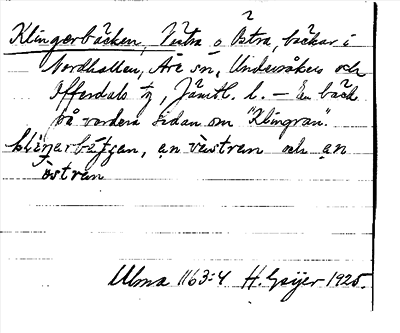 Klingerbäcken, Västra o Östra, bäckar i
Nordhallen, Åre sn, Undersåkers och
Offerdals tg, Jämtl. l. — En bäck
på vardera sidan om "Klingran".
än västran och än
östran
Ulma 1163:4 H. Geijer 1925.